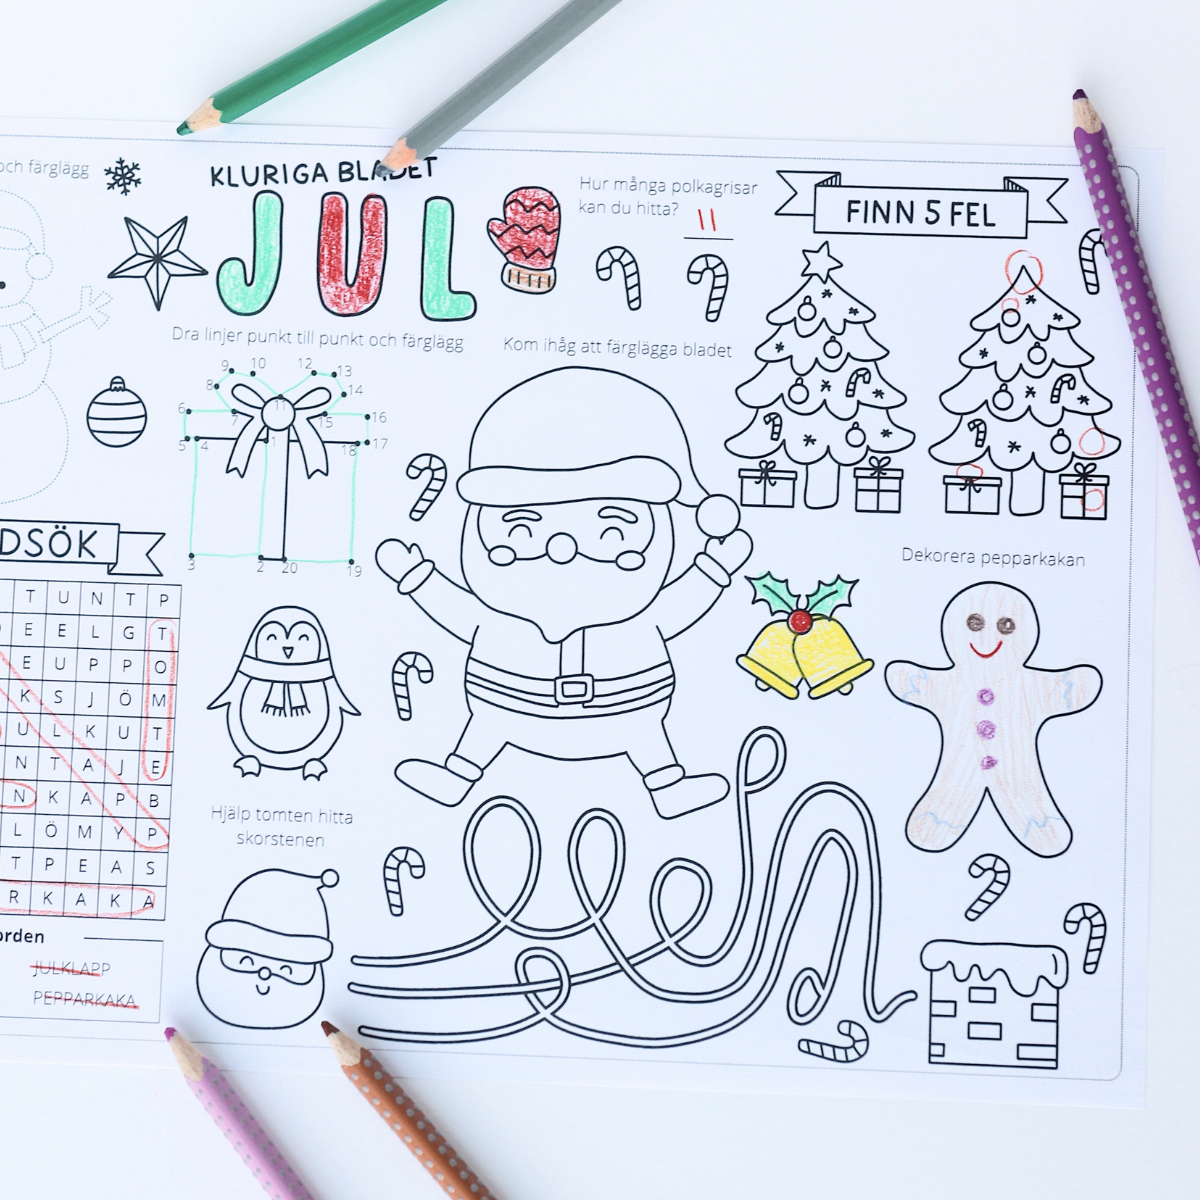 och färglägg
KLURIGA BLADET
JUL
Hur många polkagrisar
kan du hitta? 11
FINN 5 FEL
Dra linjer punkt till punkt och färglägg
Kom ihåg att färglägga bladet
9 10 12 13
8 14
6 7 11 15 16
5 4 1 18 17
3 2 20 19
Dekorera pepparkakan
DSÖK
T U N T P
E E L G T
E U P P O
K S J Ö M
U L K U T
N T A J E
N K A P B
L Ö M Y P
T P E A S
R K A K A
orden
JULKLAPP
PEPPARKAKA
Hjälp tomten hitta
skorstenen